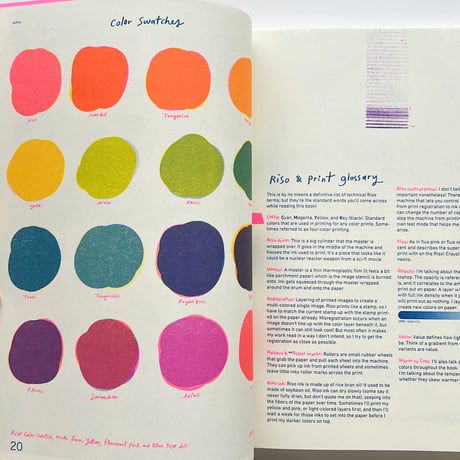 Color Swatches
Scarlet
Tangerine
gold
lime
Teal
Turquoise
Royal blue
Plum
Lavender
Lilac
Riso Color Swatch, made from Yellow, fluorescent pink and Blue Riso ink!
20
Riso & print glossary
This is by no means a definitive list of technical Riso
terms, but they're the standard words you'll come across
while reading this book!
CMYK: Cyan, Magenta, Yellow, and Key (black). Standard
colors that are used in printing for any color prints. Some-
times referred to as four-color printing.
Riso drum: This is a big cylinder that the master is
wrapped over. It goes in the middle of the machine and
houses the ink used to print. It's a piece that looks like it
could be a nuclear reactor weapon from a sci-fi movie.
Master: A master is a thin thermoplastic film (it feels a bit
like parchment paper) which is the image stencil is burned
onto. Ink gets squeezed through the master wrapped
around the drum onto the paper.
Registration: Layering of printed images to create a
multi-colored single image. Riso prints like a stamp, so I
have to match the current stamp up with the stamp print-
ed on the paper already. Misregistration occurs when an
image doesn't line up with the color layer beneath it, but
sometimes it can still look cool! But most often it makes
my work read in a way I don't intend, so I try to get the
registration as close as possible.
Rollers & Roller marks: Rollers are small rubber wheels
that grab the paper and pull each sheet into the machine.
They can pick up ink from printed sheets and sometimes
leave little inky roller marks across the print.
Riso ink: Riso ink is made up of rice bran oil! It used to be
made of soybean oil. Riso ink can dry slowly (some say it
never fully dries, but don't quote me on that), seeping into
the fibers of the paper over time. Sometimes I'll print my
yellow and pink, or light-colored layers first, and then I'll
wait a week for those inks to set into the paper before I
print my darker colors on top.
Riso control panel: I don't tal
important nonetheless! There
machine that lets you control
from print registration to ink
can change the number of cop
stop the machine from printin
can test mode that helps me
arise.
Fluo: As in fluo pink or fluo o
cent and describes the super
print with on the Riso! Crayol
neons.
Opacity: I'm talking about the
toshop. The opacity is referen
is, and it correlates to the am
print out on paper. A layer wi
with full ink density when it p
will print out as nothing. I lay
create new colors on paper.
Value: Value defines how ligh
be. Think of a gradient from
variants are value.
Warm vs Cool: I'll also talk
colors throughout the book.
I'm talking about the temper
whether they skew warmer